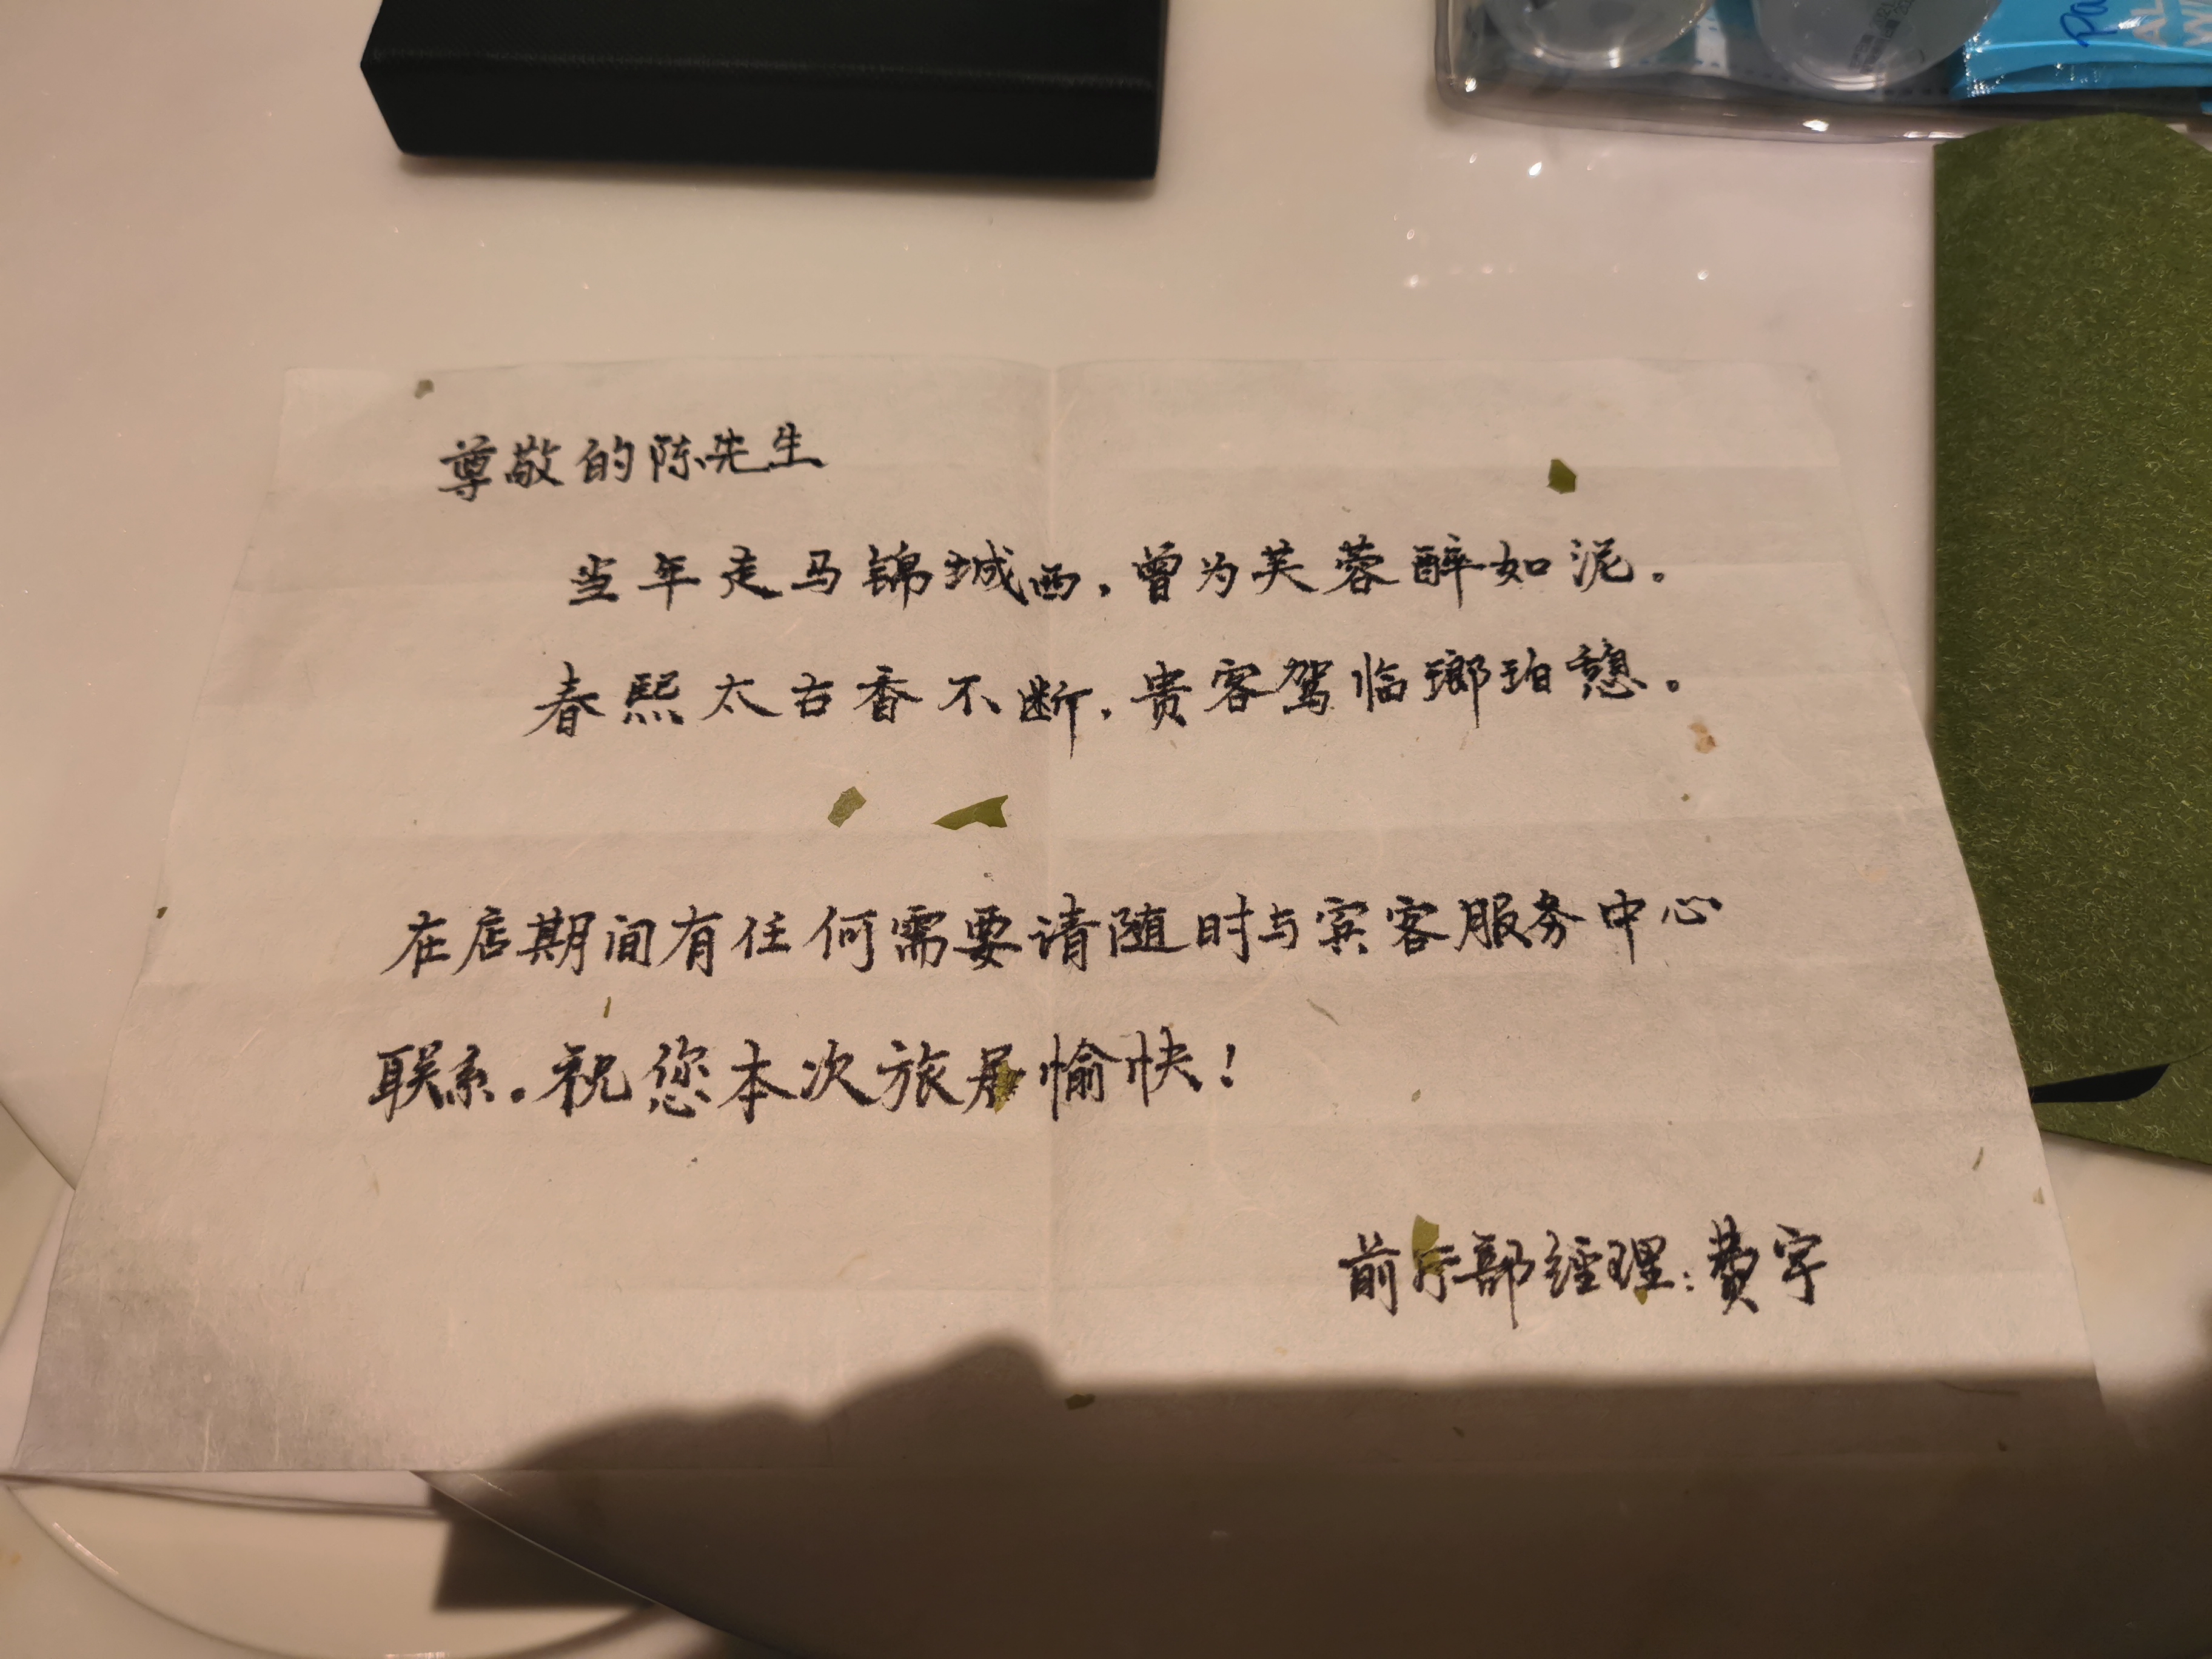 Pa
AL
W
尊敬的陈先生
当年走马锦城西，曾为芙蓉醉如泥。
春熙太古香不断，贵客驾临瑯珀憩。
在店期间有任何需要请随时与宾客服务中心
联系。祝您本次旅居愉快！
前厅部经理：费宇